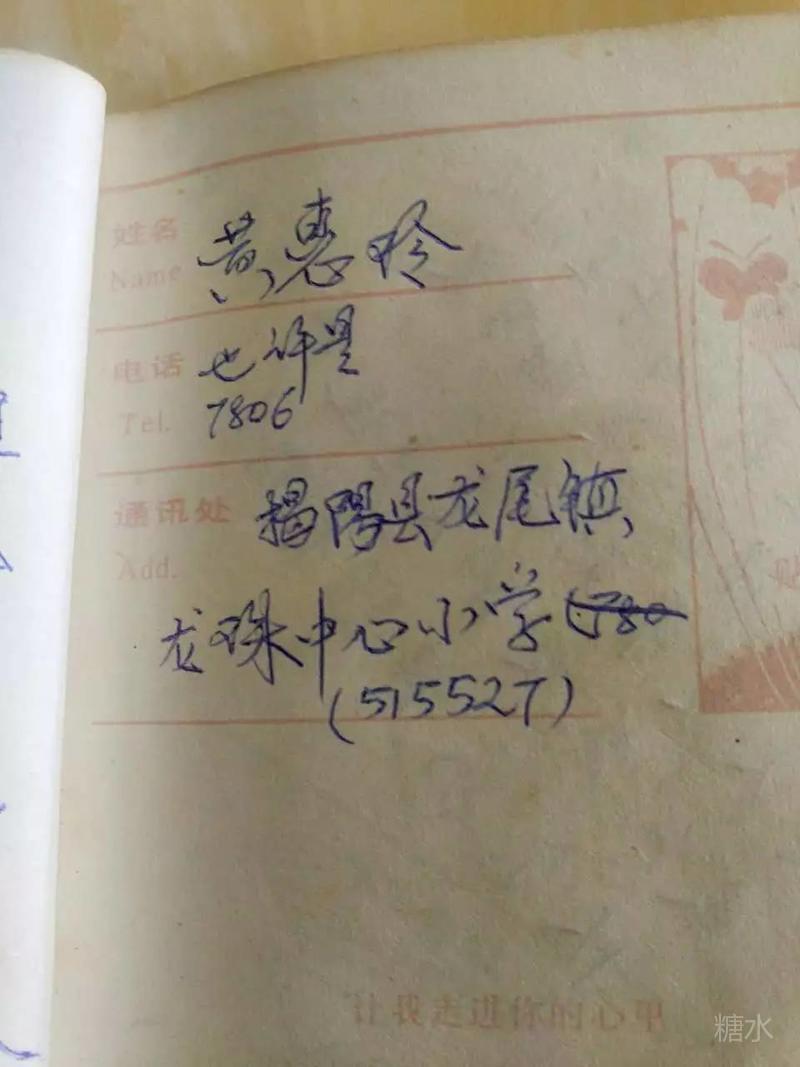 姓名 黄惠玲
Name
电话 也许是
Tel. 7806
通讯处 揭陽县龙尾镇
Add.
龙珠中心小学
(515527)
贴
让我走进你的心田
糖水